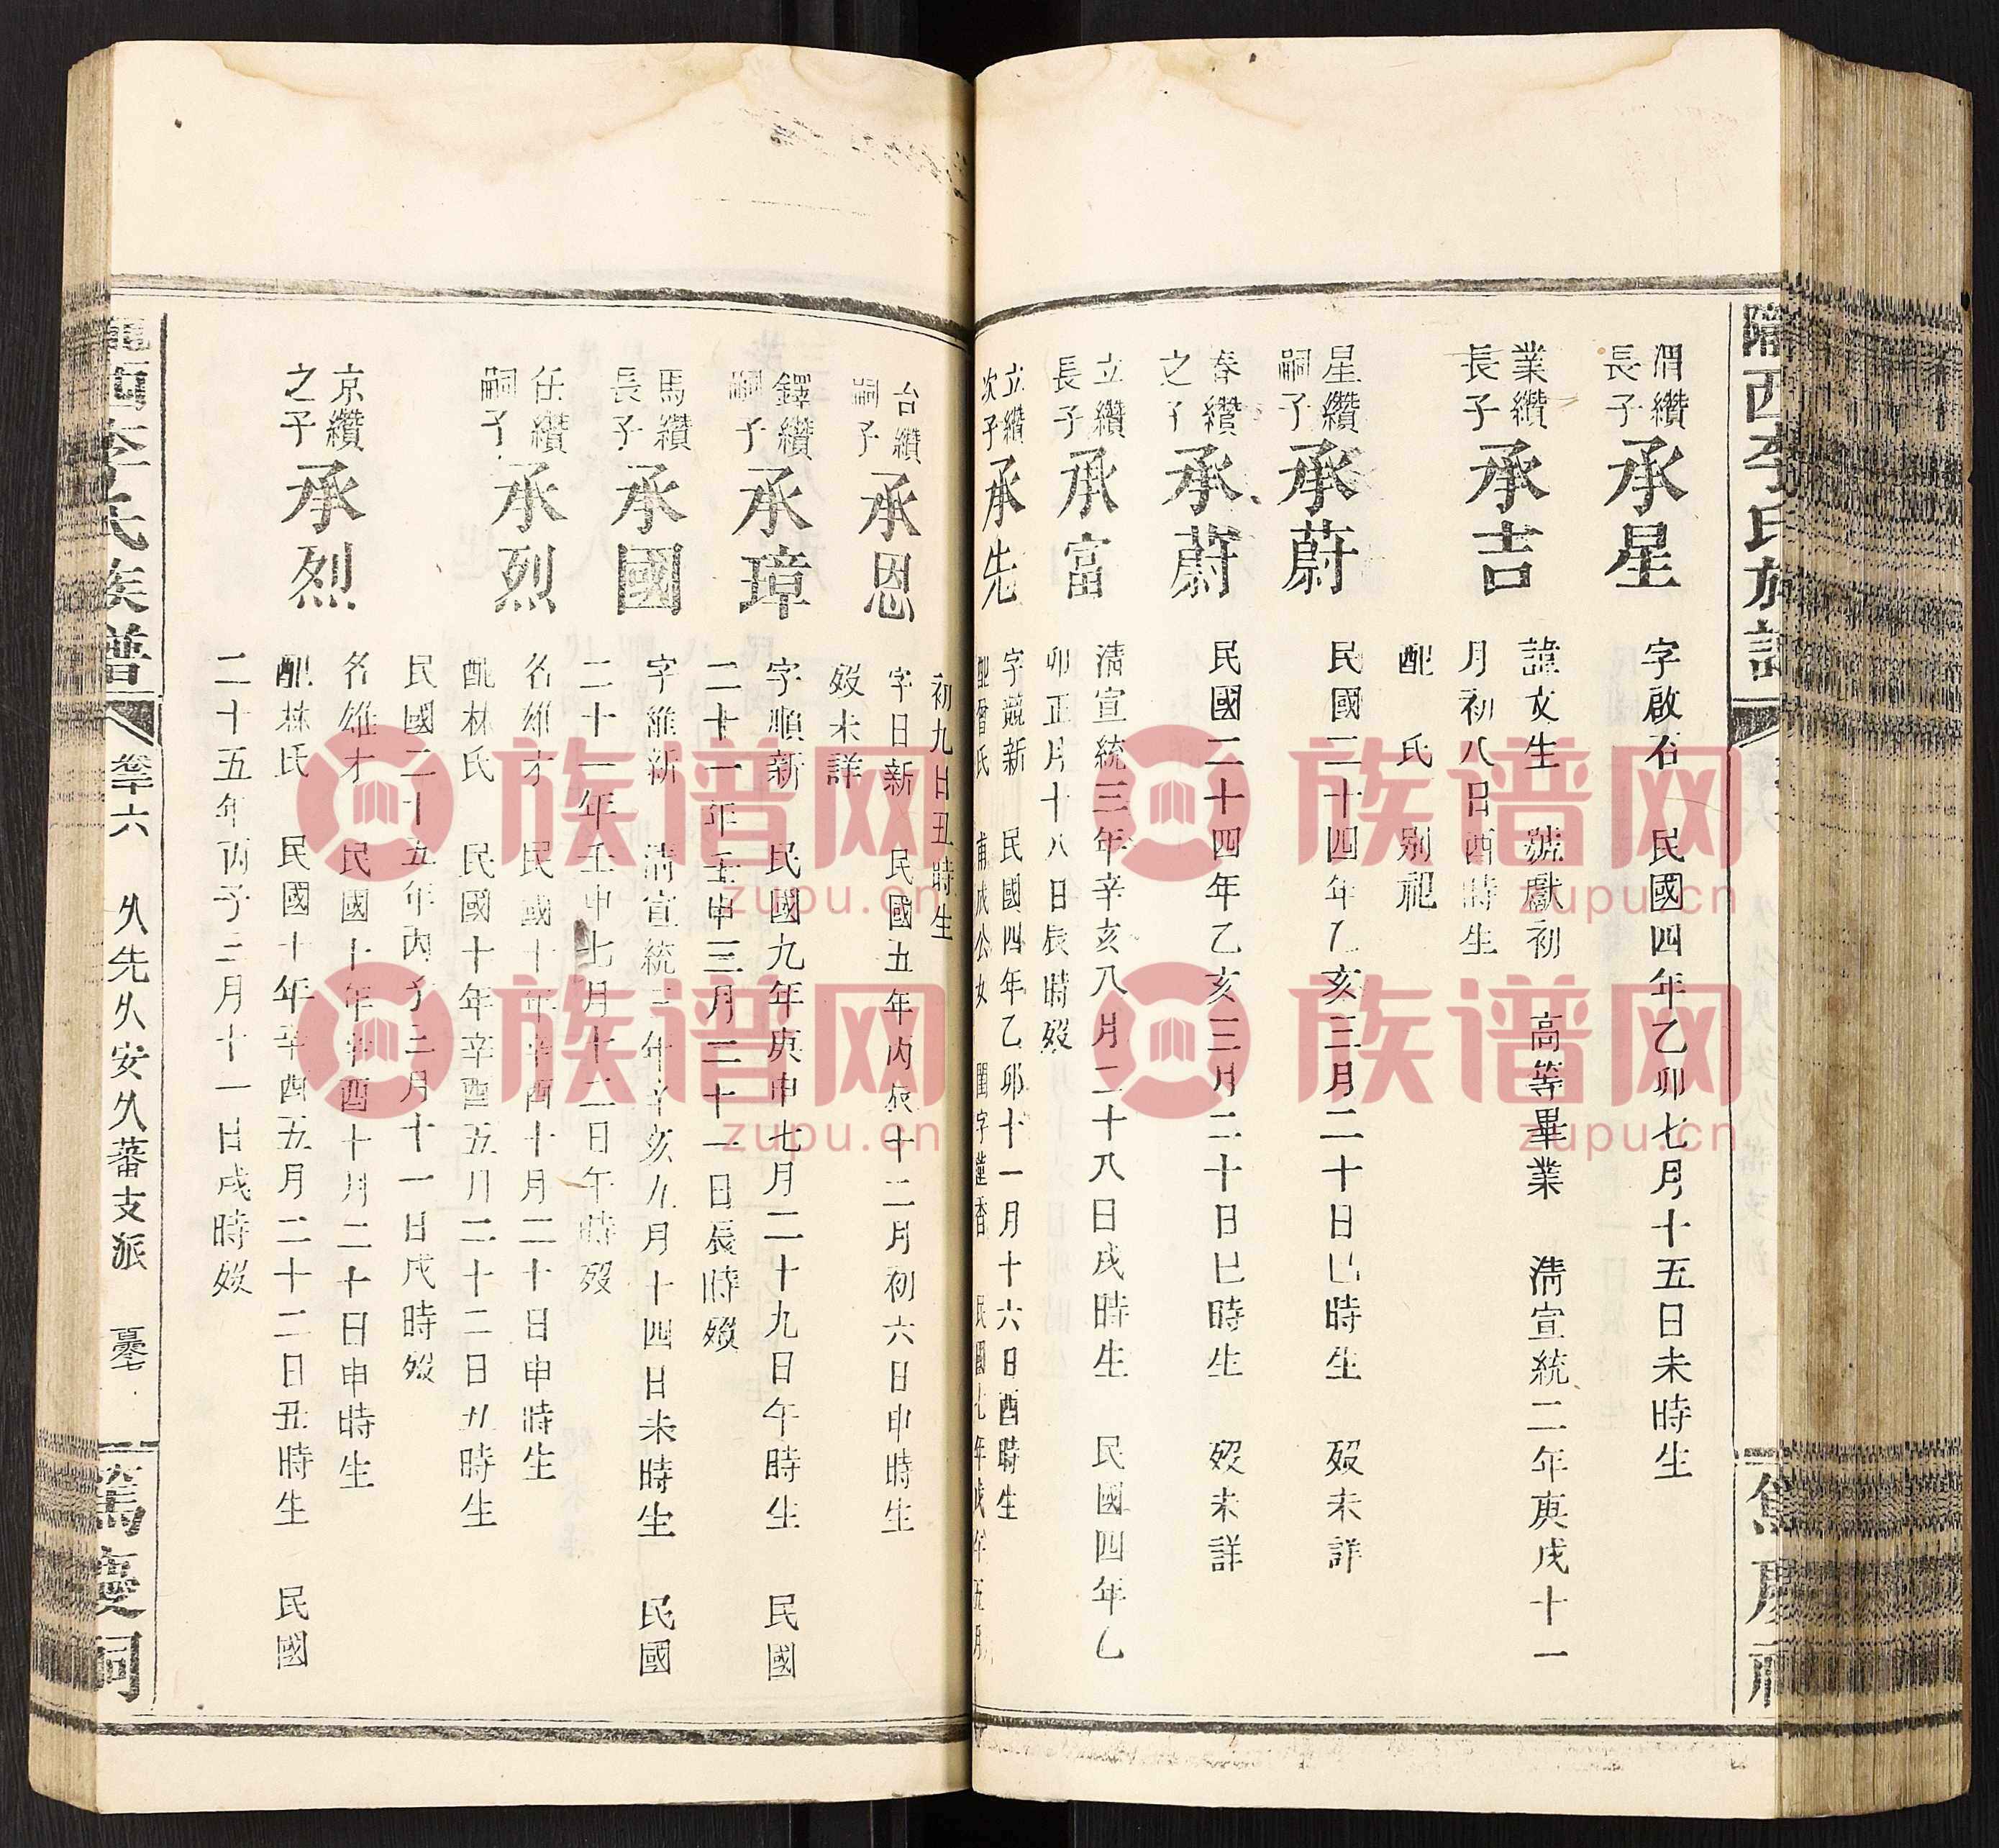 隴西李氏族譜
渭纘
長子
承星
字啟石 民國四年乙卯七月十五日未時生
業纘
長子
承吉
諱文生 號獻初 高等畢業 清宣統二年庚戌十一
月初八日酉時生
配 氏 別祀
星纘
嗣子
承蔚
民國二十四年乙亥三月二十日巳時生 歿未詳
春纘
之子
承蔚
民國二十四年乙亥三月二十日巳時生 歿未詳
立纘
長子
承富
清宣統三年辛亥八月二十八日戌時生 民國四年乙
卯正月十八日辰時歿
立纘
次子
承先
字競新 民國四年乙卯十一月十六日酉時生
配曾氏 甫成公女 閨字蓮香 民國九年戊午年五月
初九日丑時生
台纘
嗣子
承恩
字日新 民國五年丙辰十二月初六日申時生
歿未詳
鐸纘
嗣子
承璋
字順新 民國九年庚申七月二十九日午時生 民國
二十一年壬申三月二十一日辰時歿
馬纘
長子
承國
字維新 清宣統三年辛亥九月十四日未時生 民國
二十一年壬申七月十二日午時歿
任纘
嗣子
承烈
名雄才 民國十年辛酉十月二十日申時生
配林氏 民國十年辛酉五月二十二日丑時生
民國二十五年丙子二月十一日戌時歿
京纘
之子
承烈
名雄才 民國十年辛酉十月二十日申時生
配林氏 民國十年辛酉五月二十二日丑時生 民國
二十五年丙子二月十一日戌時歿
隴西李氏族譜 卷十六 久先久安久蕃支派 篤慶祠
族谱网
zupu.cn
族谱网
zupu.cn
族谱网
zupu.cn
族谱网
zupu.cn